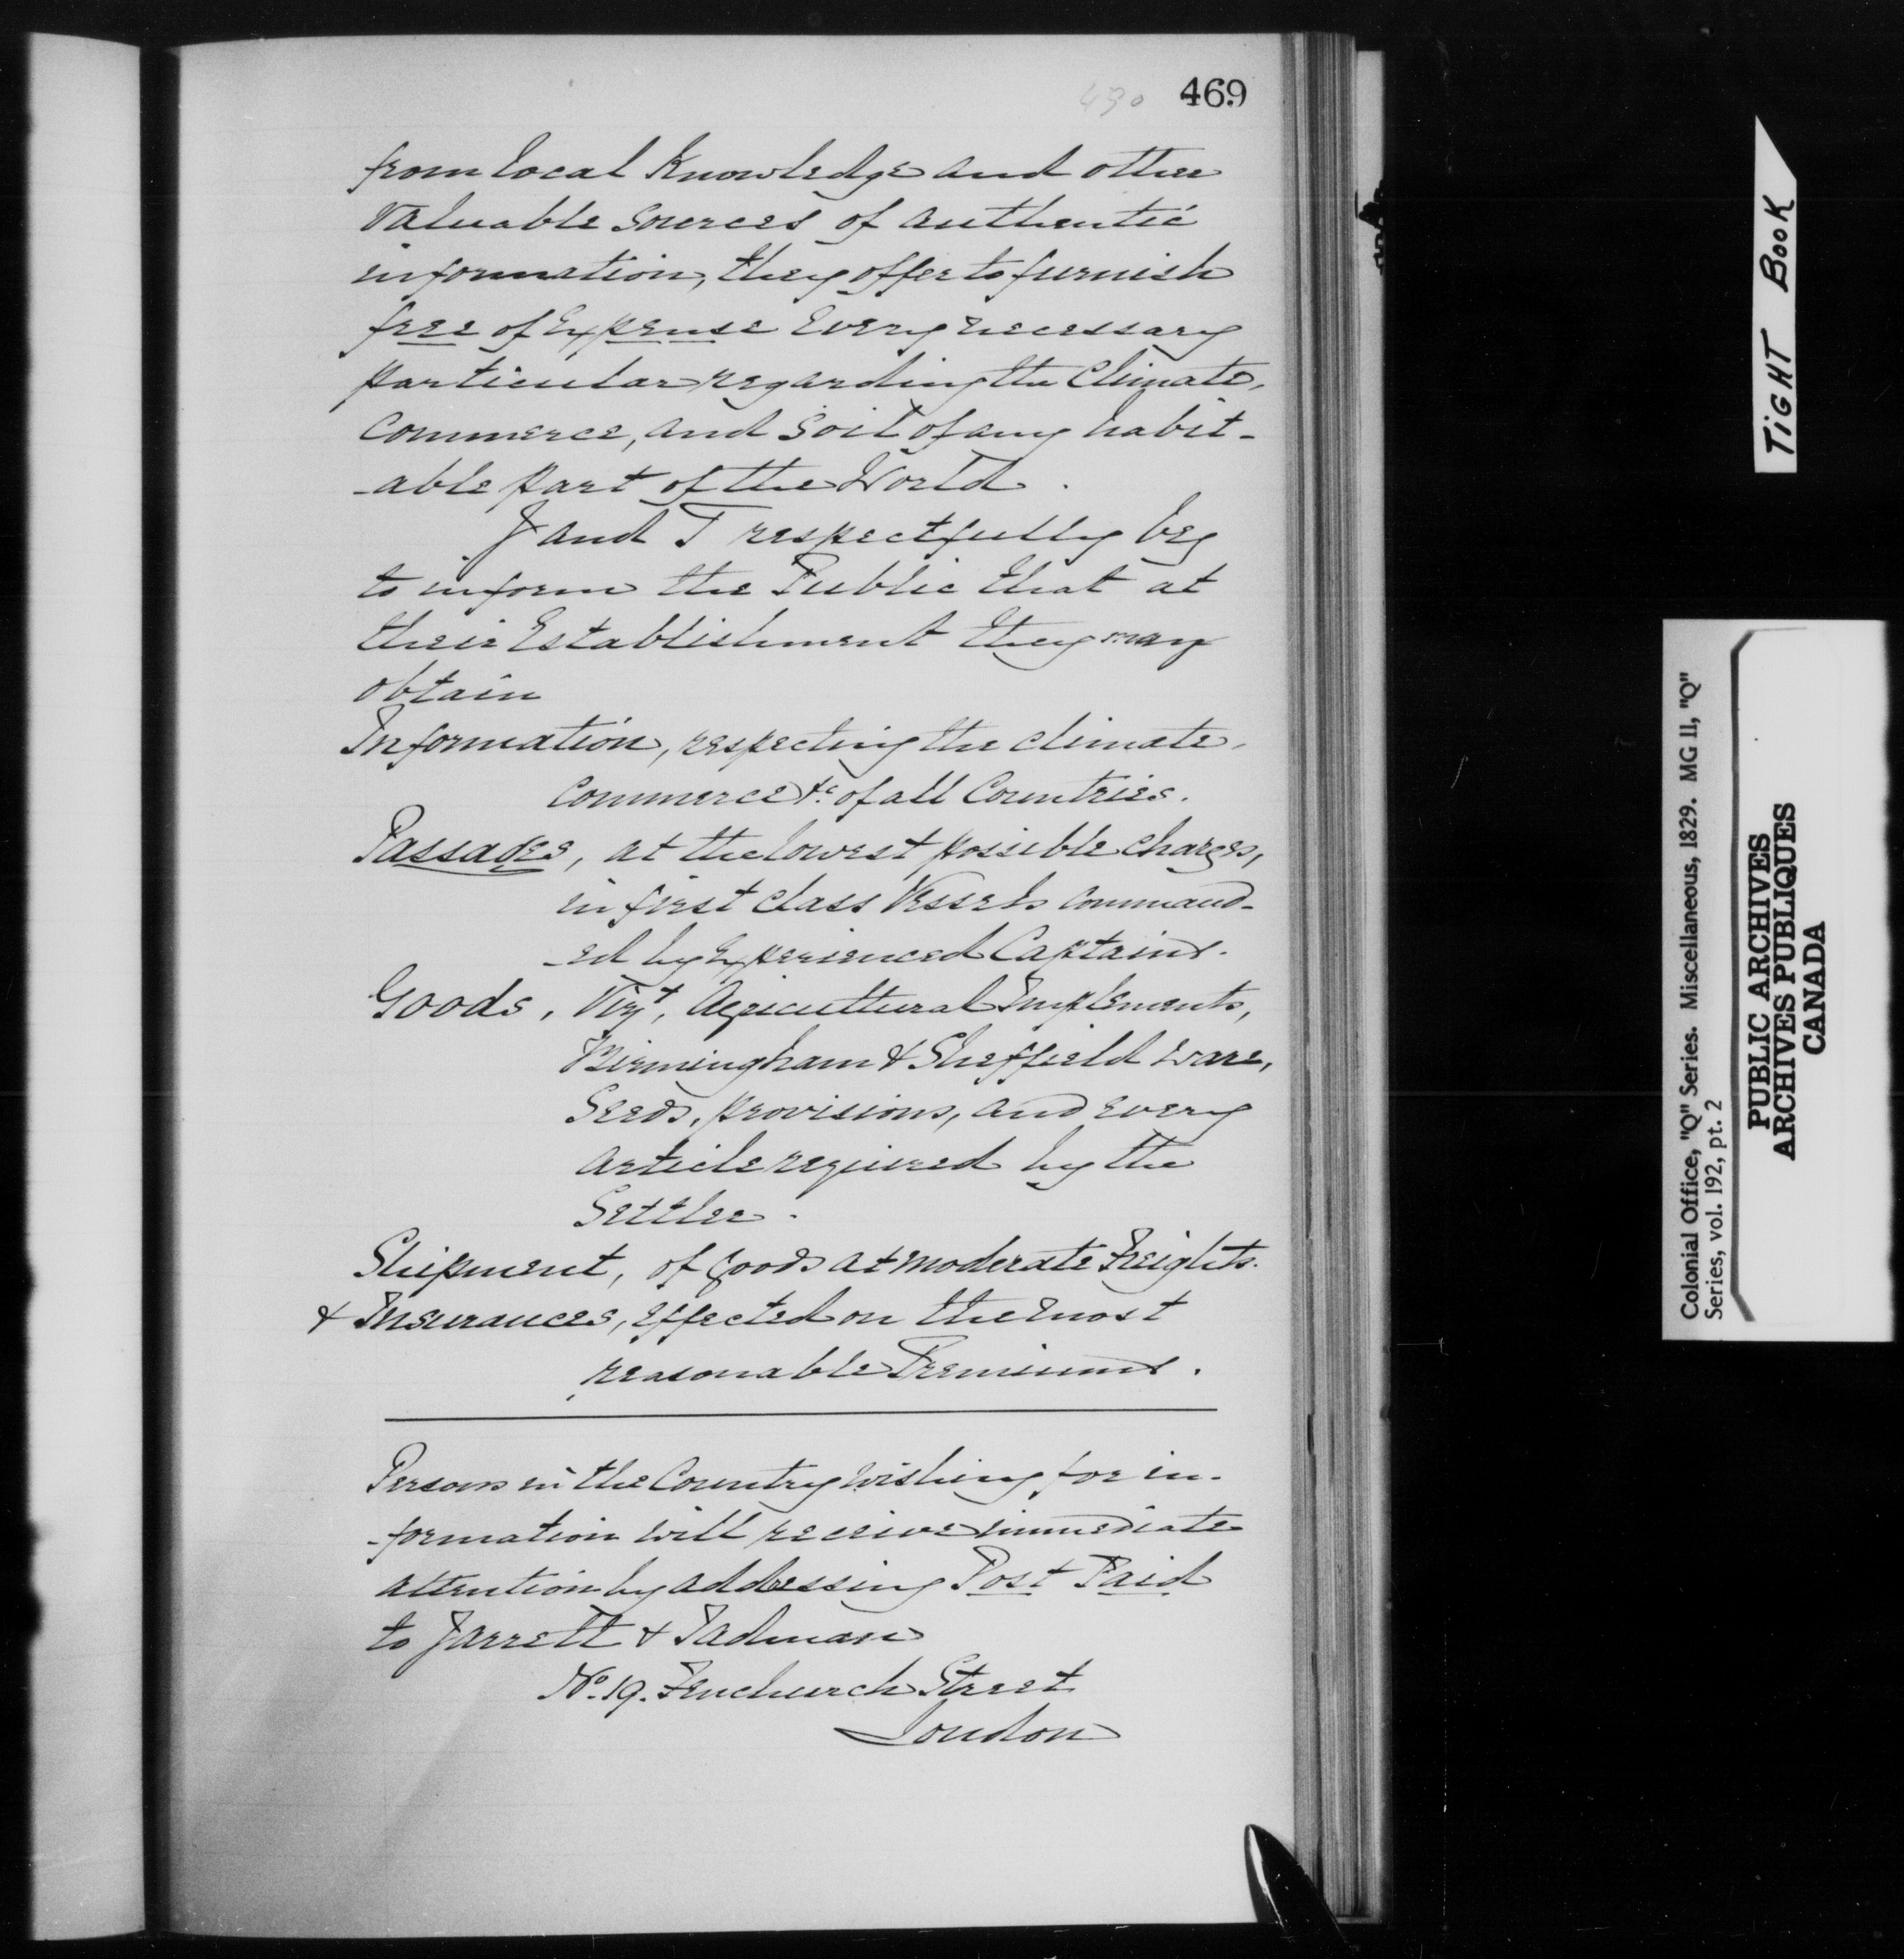 490 469
from local Knowledge and other
valuable sources of authentic
information, they offer to furnish
free of Expense Every necessary
particular regarding the Climate,
Commerce, and Soil of any habit-
-able part of the World.
J and T respectfully beg
to inform the Public that at
their Establishment they may
obtain
Information, respecting the climate,
Commerce &c of all Countries.
Passages, at the lowest possible charges,
in first class Vessels command-
-ed by Experienced Captains.
Goods, Vizt, Agricultural Implements,
Birmingham & Sheffield Ware,
Seeds, provisions, and every
article required by the
Settler.
Shipment, of goods at moderate Freights.
& Insurances, effected on the most
reasonable Premiums.
Persons in the Country wishing for in-
-formation will receive immediate
attention by addressing Post Paid
to Jarrett & Tadman
No. 19. Fenchurch Street
London
TIGHT BOOK
Colonial Office, "Q" Series. Miscellaneous, 1829. MG 11, "Q"
Series, vol. 192, pt. 2
PUBLIC ARCHIVES
ARCHIVES PUBLIQUES
CANADA